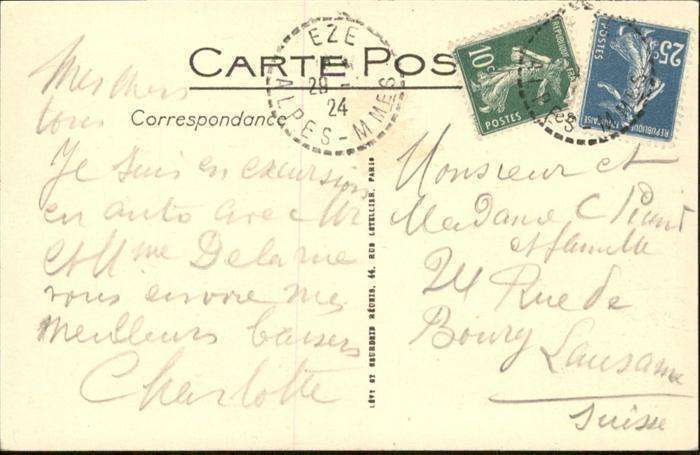 CARTE POS
Correspondance
EZE
28 - 24
ALPES-MMES
10c
POSTES
25c
POSTES
Mes chers
tous
Je suis en excursion
en auto avec Mr
et Mme Delarue
vous envoie mes
meilleurs baisers
Charlotte
LÉVY ET NEURDEIN RÉUNIS, 44, RUE LETELLIER, PARIS
Monsieur et
Madame C
et famille
24 Rue de
Bourg Lausanne
Suisse